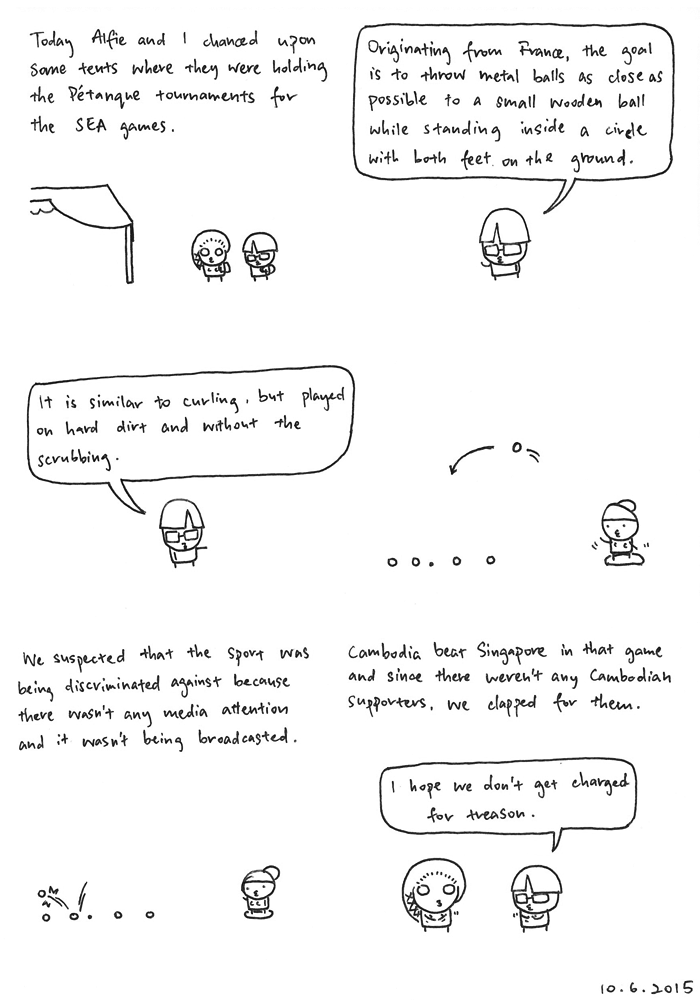 Today Alfie and I chanced upon
some tents where they were holding
the Pétanque tournaments for
the SEA games.
Originating from France, the goal
is to throw metal balls as close as
possible to a small wooden ball
while standing inside a circle
with both feet on the ground.
It is similar to curling, but played
on hard dirt and without the
scrubbing.
We suspected that the sport was
being discriminated against because
there wasn't any media attention
and it wasn't being broadcasted.
Cambodia beat Singapore in that game
and since there weren't any Cambodian
supporters, we clapped for them.
I hope we don't get charged
for treason.
10.6.2015